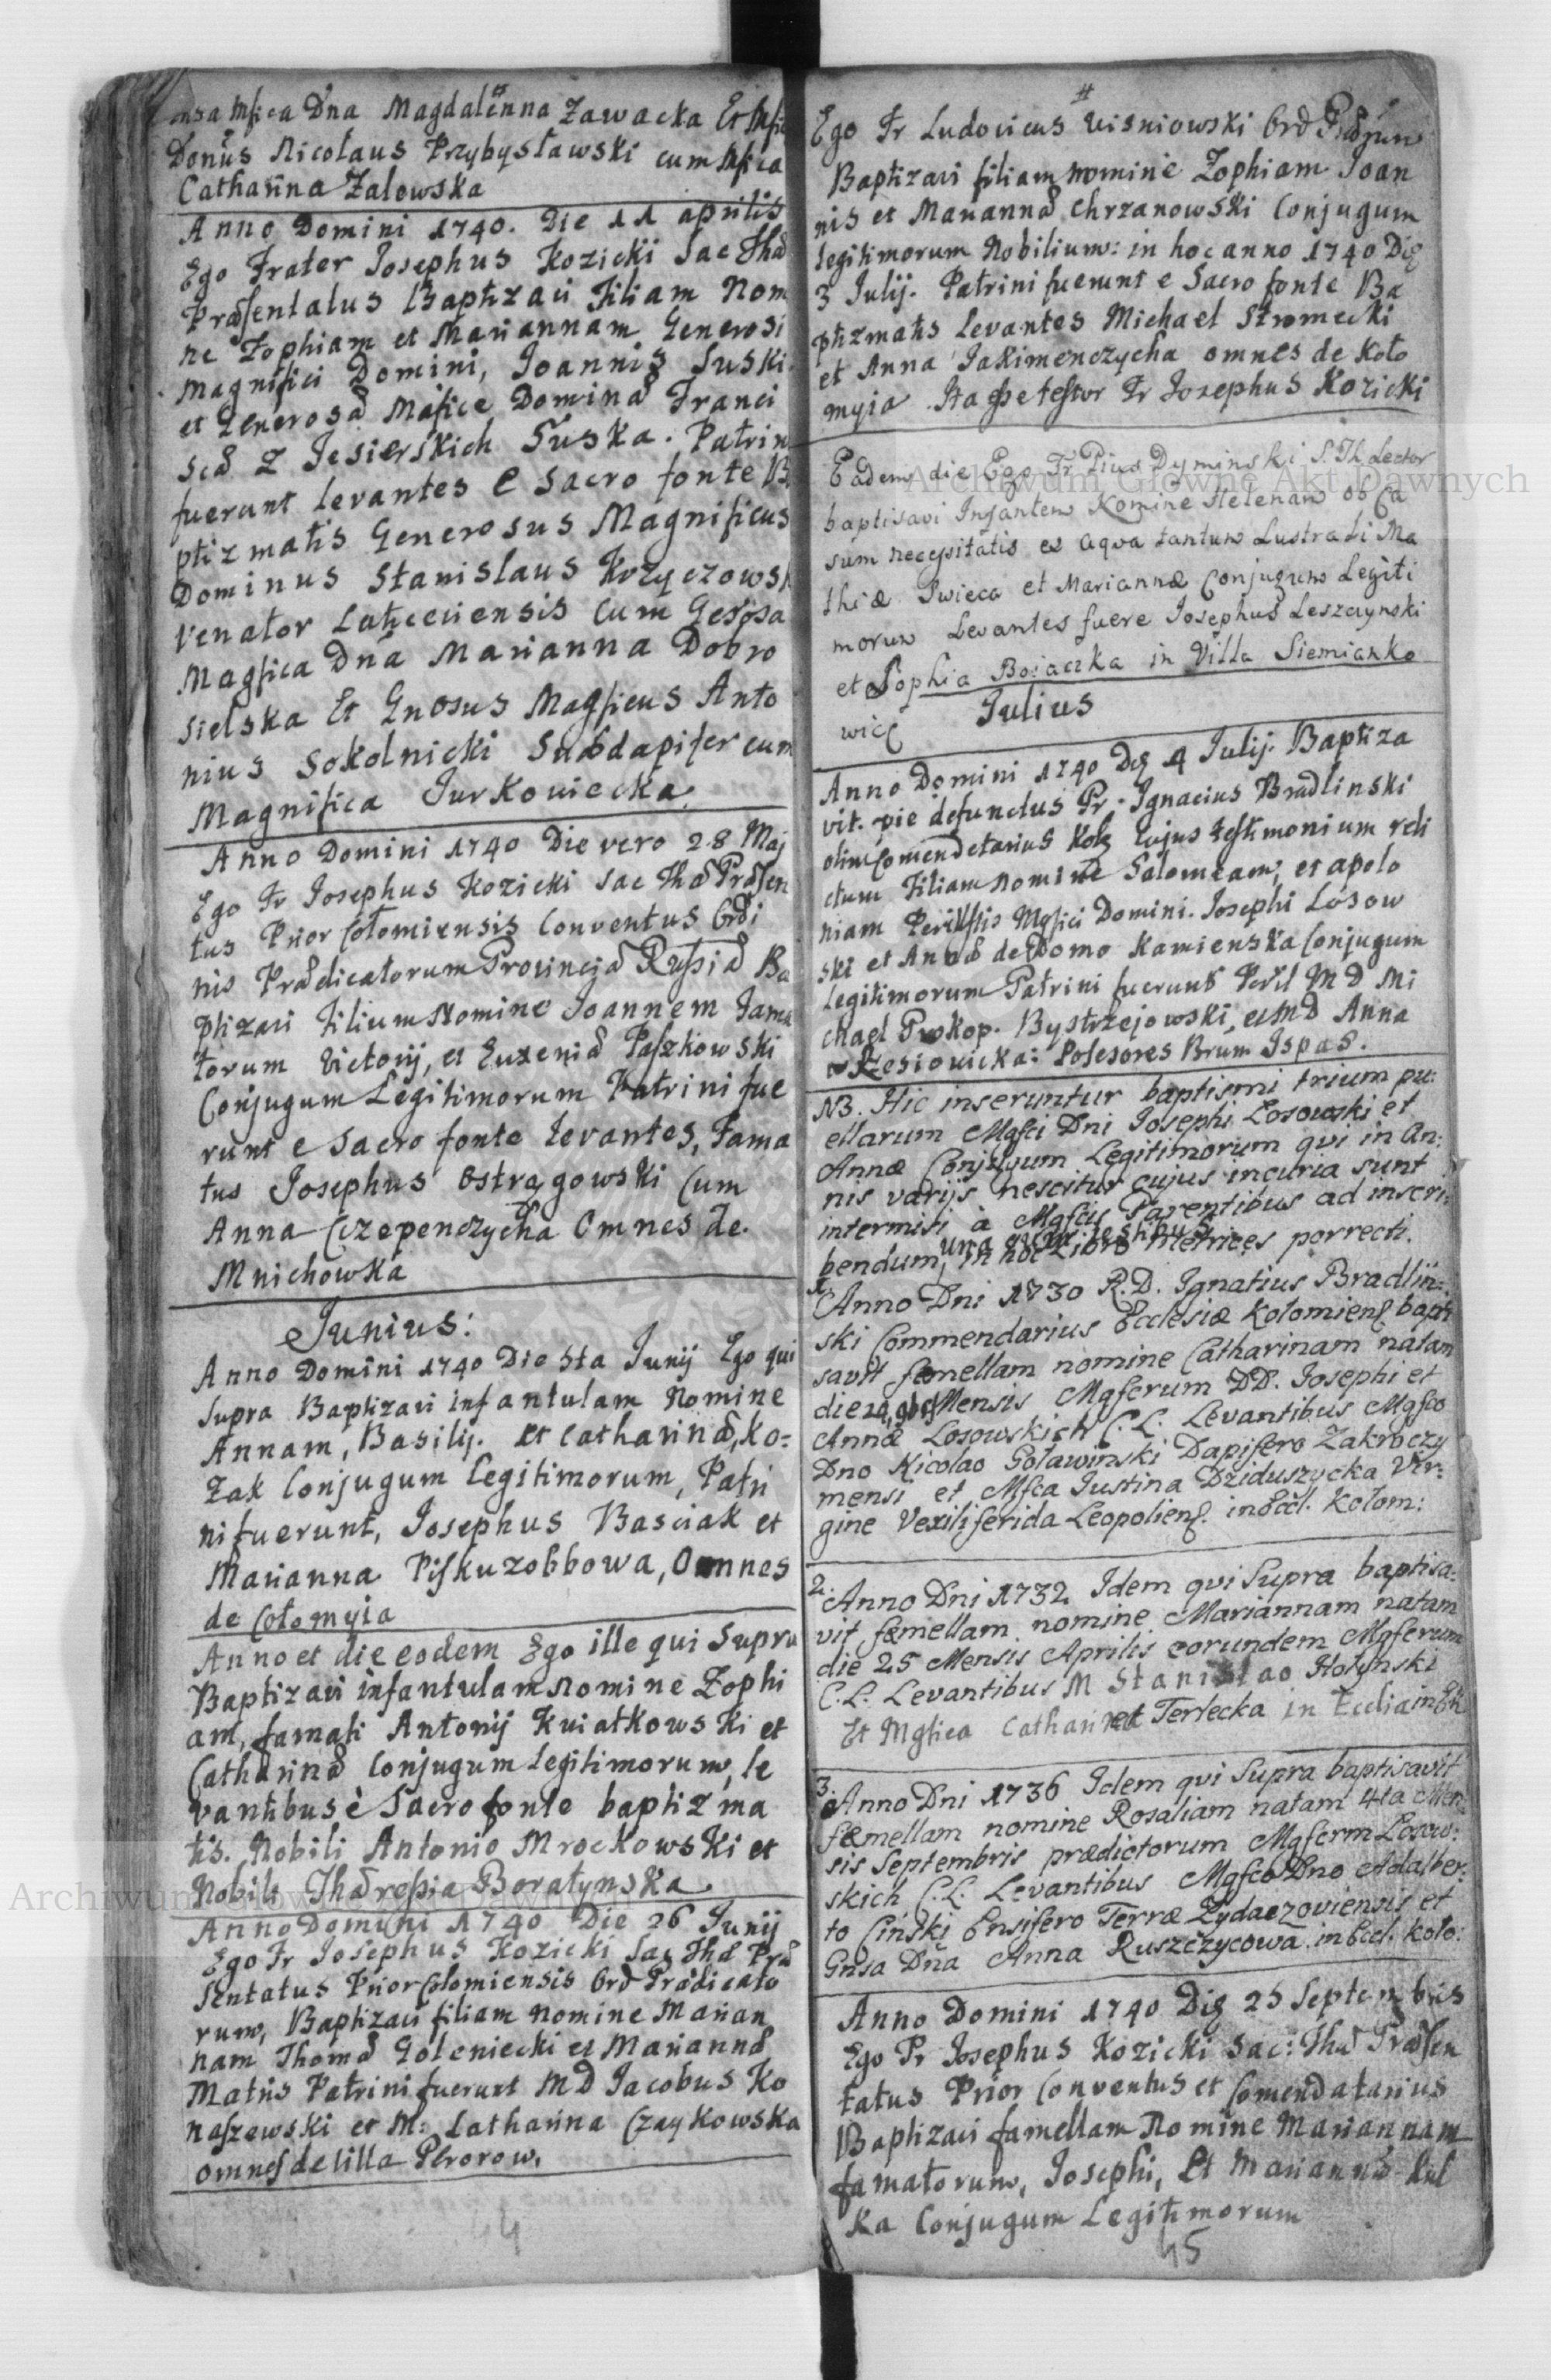 onsa Mfica Dna Magdalenna Zawacka Et Mfic
Donus Nicolaus Przybysławski cum Mfica
Catharina Zalowska
Anno Domini 1740. Die 11 aprilis
Ego Frater Josephus Kozicki Sac Thæ
Præsentatus Baptizavi Filiam Nom
ne Zophiam et Mariannam Generosi
Magnifici Domini, Joannis Suski
et Generosæ Mafice Dominæ Franci
scæ Z Jesierskich Suska. Patrin
fuerunt levantes e Sacro fonte B
ptizmatis Generosus Magnificus
Dominus Stanislaus Krzyczowsk
Venator Laticeviensis Cum
Magfica Dna Marianna Dobro
sielska Et Gnosus Magficus Anto
nius Sokolnicki Subdapifer cum
Magnifica Jurkowiecka
Anno Domini 1740 Die vero 28 Maj
Ego Fr Josephus Kozicki Sac Thæ Præsen
tus Prior Cołomiensis Conventus Ordi
nis Prædicatorum Provinciæ Russiæ Ba
ptizavi Filium Nomine Joannem Fama
torum Victorij, et Euxeniæ Paszkowski
Conjugum Legitimorum Patrini fue
runt e Sacro fonte levantes, Fama
tus Josephus Ostrągowski Cum
Anna Czepenczycha Omnes de
Mnichowka
Junius:
Anno Domini 1740 Die 5ta Junij Ego qui
Supra Baptizavi infantulam Nomine
Annam, Basilij. et Catharinæ, Ko=
zak Conjugum Legitimorum, Patri
ni fuerunt, Josephus Basciak et
Marianna Piskuzobbowa, Omnes
de Cołomyia
Anno et die eodem Ego ille qui Supra
Baptizavi infantulam Nomine Zophi
am, famati Antonij Kwiatkowski et
Catharinæ Conjugum Legitimorum, le
vantibus è Sacro fonte baptizma
tis. Nobili Antonio Mrockowski et
Nobili Thæressia Boratynska
Anno Domini 1740 Die 26 Junij
Ego Fr Josephus Kozicki Sac Thæ Præ
sentatus Prior Cołomiensis Ord Prædicato
rum, Baptizavi filiam nomine Marian
nam Thomæ Goleniecki et Mariannæ
Matris Patrini fuerunt MD Jacobus Ko
naszewski et M: Catharina Czaykowska
omnes de Villa Perorow.
44
#
Ego Fr Ludovicus Wisniowski Ord
Baptizavi filiam nomine Zophiam Joan
nis et Mariannæ Chrzanowski Conjugum
legitimorum Nobilium: in hoc anno 1740 Die
3 Julij. Patrini fuerunt e Sacro fonte Ba
ptizmatis levantes Michael Stromecki
et Anna Jakimenczycha omnes de Koło
myia. Ita esse testor Fr Josephus Kozicki
Eadem die Ego Fr Pius Dyminski S. Th. Lector
baptisavi Infantem Nomine Helenam ob Ca
sum necessitatis ex aqva tantum Lustrali Ma
thiæ Iwieca et Mariannæ Conjugum Legiti
morum Levantes fuere Josephus Leszczynski
et Sophia Bojaczka in Villa Siemianko
wice
Julius
Anno Domini 1740 Die 4 Julij. Baptiza
vit. pie defunctus Pr. Ignacius Bradlinski
olim Comendetarius Koł Cujus testimonium reli
ctum Filiam nomine Salomeam, et apolo
niam Perillstis Mgfici Domini. Josephi Losow
ski et Annæ de Domo Kamienska Conjugum
Legitimorum Patrini fuerunt Peril MD Mi
chael Prokop. Bystrzejowski, et MD Anna
Rzesiowicka: Posesores Brum Ispas.
NB. Hic inseruntur baptismi trium pu:
ellarum Mgfci Dni Josephi Łosowski et
Annæ Conjugum Legitimorum qvi in an:
nis varijs nescitur cujus incuria sunt
intermissi à Mgfcis Parentibus ad inscri:
bendum, in hoc Libro Metrices porrecti.
1. Anno Dni 1730 R. D. Ignatius Bradliń:
ski Commendarius Ecclesiæ Kolomiens bapti
savit fæmellam nomine Catharinam natam
die 24 9bris Mensis Mgfcrum DD. Josephi et
Annæ Łosowskich C. L. Levantibus Mgfco
Dno Nicolao Goławinski Dapifero Zakroczy
mensi et Mfca Justina Dziduszycka Vir:
gine Vexiliferida Leopoliens. in Eccl. Kołom:
2. Anno Dni 1732 Idem qvi Supra baptisa:
vit fæmellam nomine Mariannam natam
die 25 Mensis Aprilis eorundem Mgfcrum
C. L. Levantibus M Stanislao Hołynski
Et Mgfica Catharina Terlecka in Ecclia
3. Anno Dni 1736 Idem qvi Supra baptisavit
fæmellam nomine Rosaliam natam 4ta Men
sis Septembris prædictorum Mgfcrm Łosow:
skich C. L. Levantibus Mgfco Dno Adalber:
to Cinski Ensifero Terræ Zydaczoviensis et
Gnsa Dna Anna Ruszczycowa. in Eccl. Koło:
Anno Domini 1740 Die 25 Septembris
Ego Pr Josephus Kozicki Sac: Thæ Præsen
tatus Prior Conventus et Comendatarius
Baptizavi famellam Nomine Mariannam
famatorum, Josephi, Et Mariannæ Kul
ka Conjugum Legitimorum
45
Archiwum Główne Akt Dawnych
Archiwum Główne Akt Dawnych